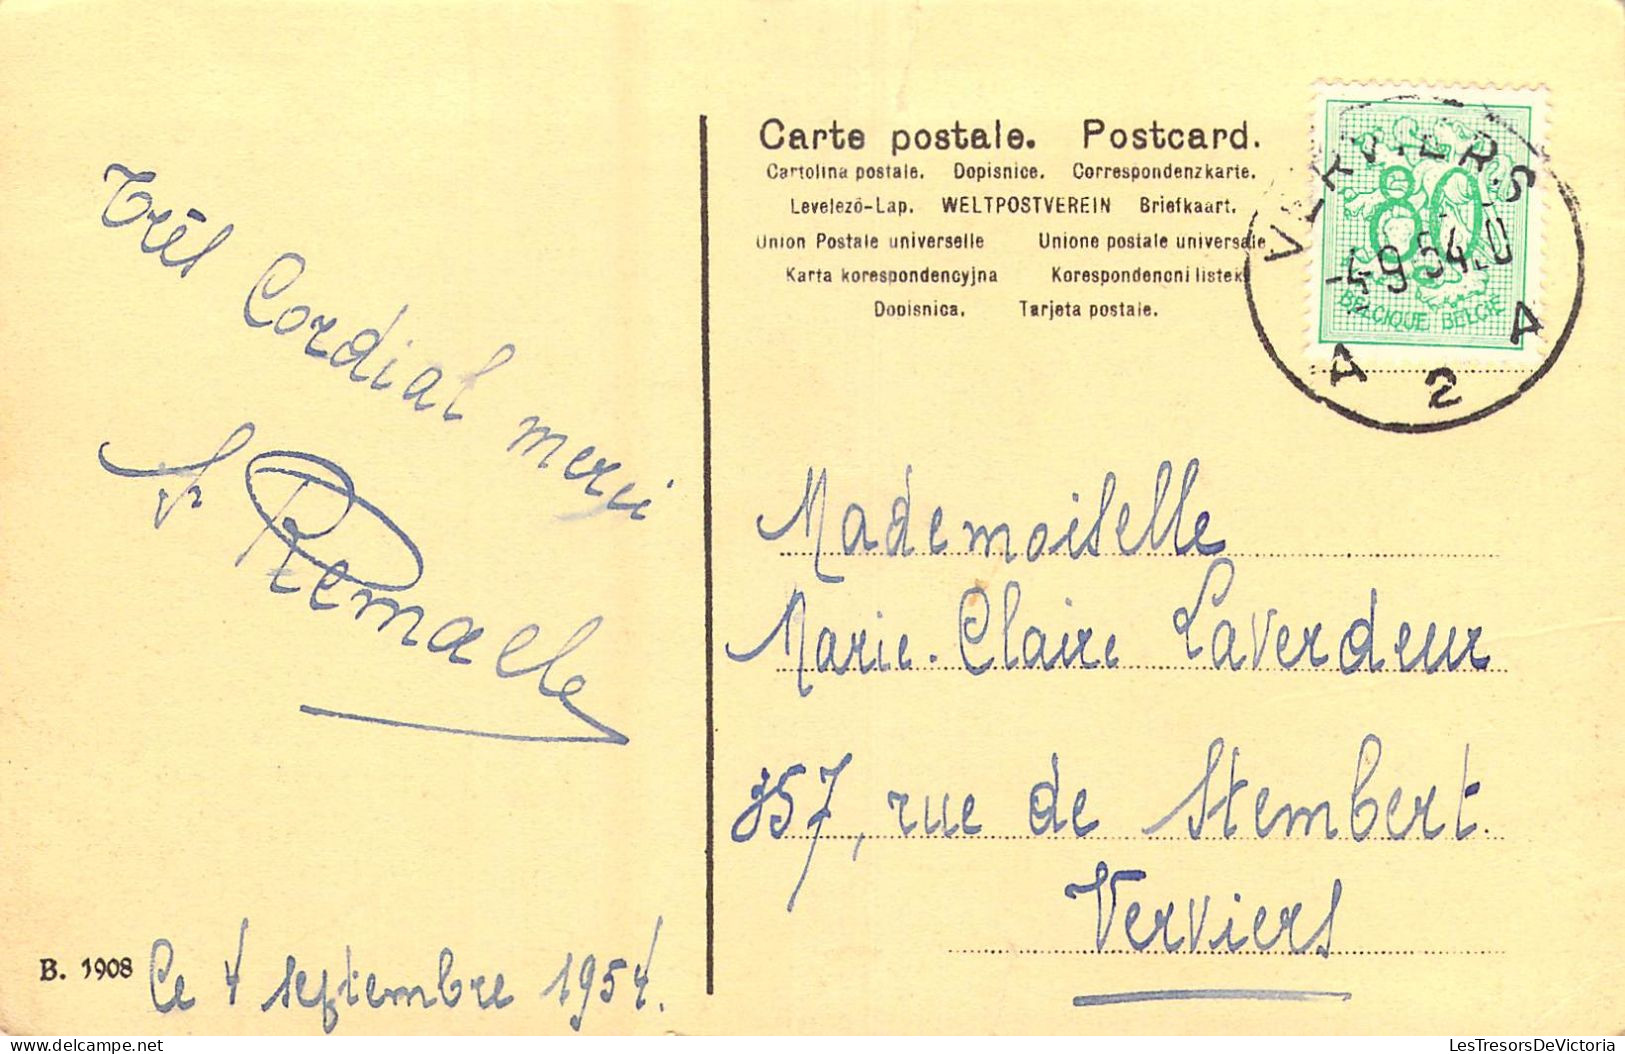 Très
Cordial
merci
Remacle
B. 1908
Ce 4 septembre 1954.
Carte postale. Postcard.
Cartolina postale. Dopisnice. Correspondenzkarte.
Levelező-Lap. WELTPOSTVEREIN Briefkaart.
Union Postale universelle Unione postale universale
Karta korespondencyjna Korespondencni listek
Dopisnica. Tarjeta postale.
VERVIERS
-4-9 54.
A 2 A
80
BELGIQUE BELGIË
Mademoiselle
Marie-Claire Laverdeur
357, rue de Stembert.
Verviers
LesTresorsDeVictoria
delcampe.net